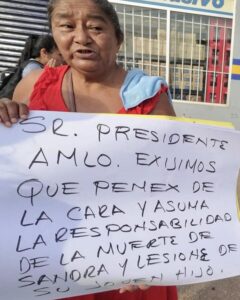 SR. PRESIDENTE
AMLO. EXIJIMOS
QUE PEMEX DE
LA CARA Y ASUMA
LA RESPONSABILIDAD
DE LA MUERTE DE
SANDRA Y LESIONE DE
SU JOVEN HIJO.